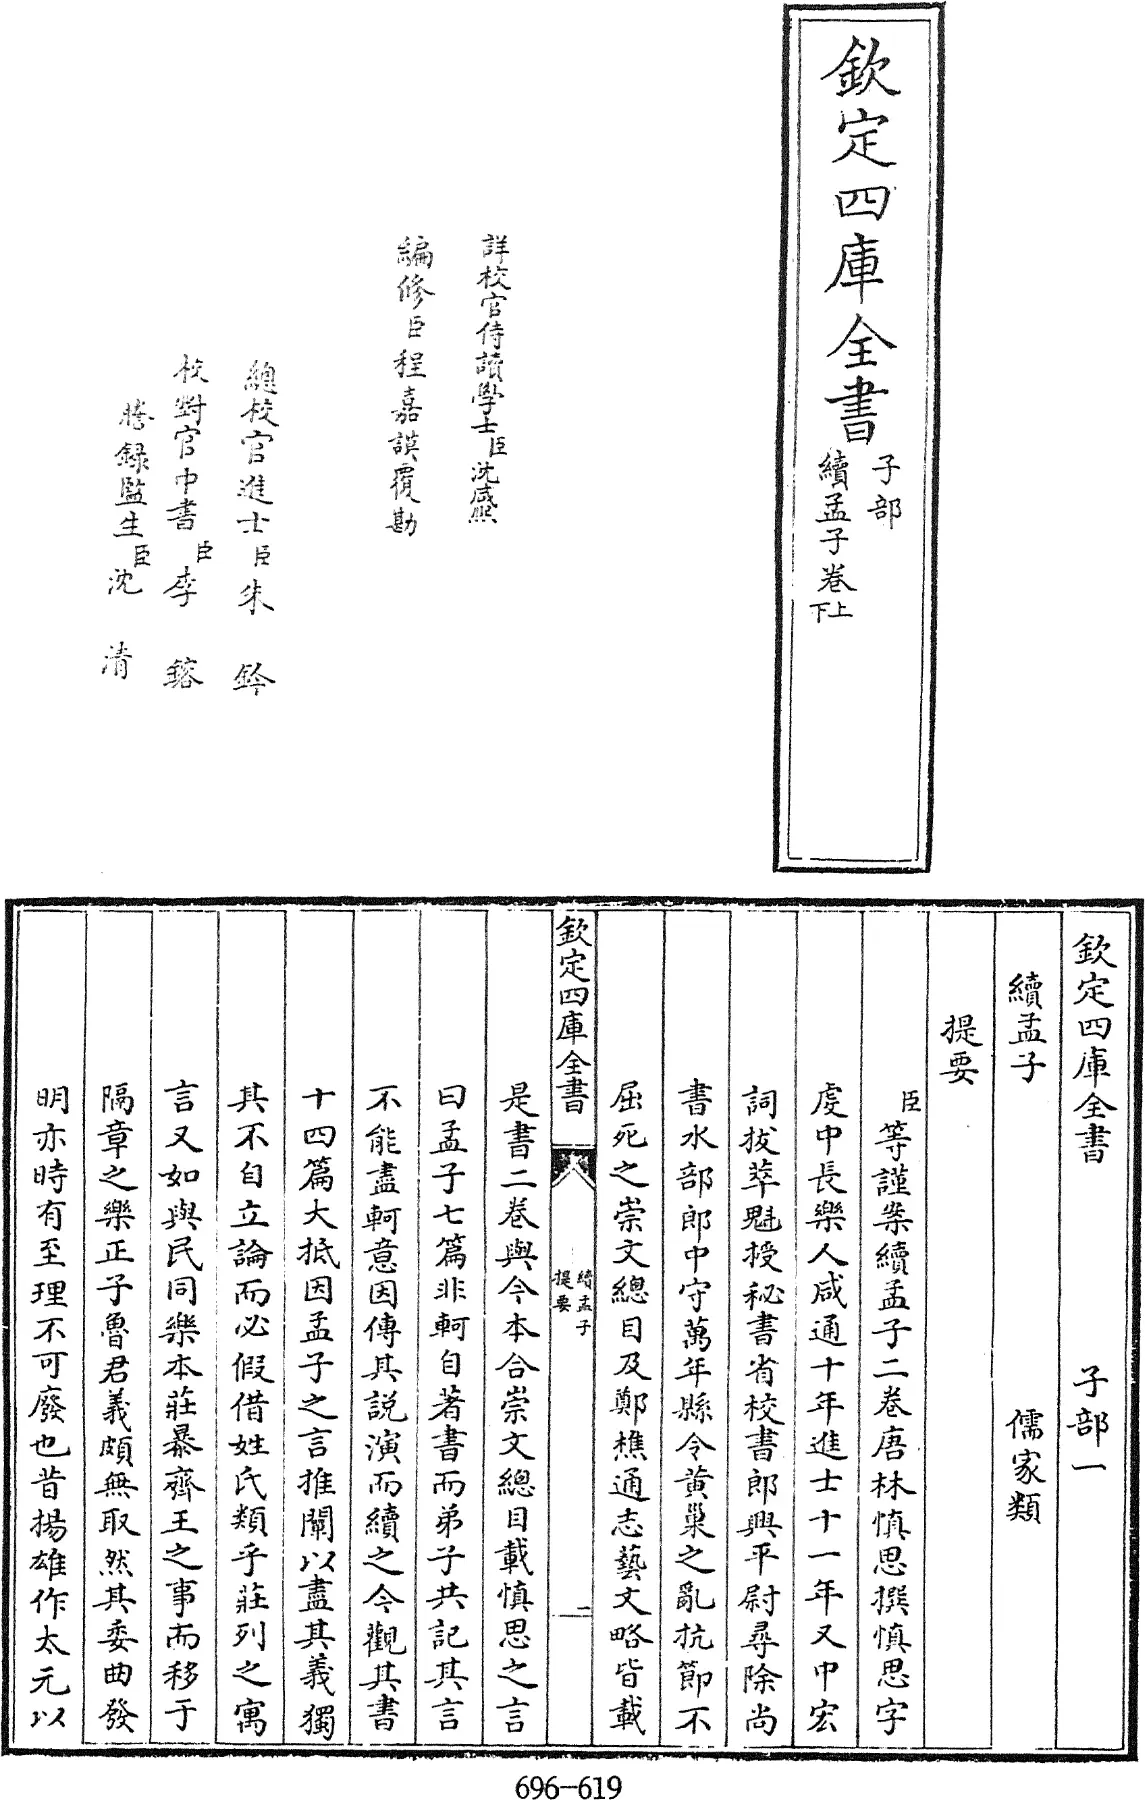 欽定四庫全書
子部
續孟子卷上下
詳校官侍讀學士臣沈咸熙
編修臣程嘉謨覆勘
總校官進士臣朱鈐
校對官中書臣李鎔
謄錄監生臣沈清
欽定四庫全書 子部一
續孟子 儒家類
提要
臣等謹案續孟子二卷唐林慎思撰慎思字
虔中長樂人咸通十年進士十一年又中宏
詞拔萃魁授秘書省校書郎興平尉尋除尚
書水部郎中守萬年縣令黄巢之亂抗節不
屈死之崇文總目及鄭樵通志藝文略皆載
欽定四庫全書 續孟子提要 一
是書二卷與今本合崇文總目載慎思之言
曰孟子七篇非軻自著書而弟子共記其言
不能盡軻意因傳其説演而續之今觀其書
十四篇大抵因孟子之言推闡以盡其義獨
其不自立論而必假借姓氏類乎莊列之寓
言又如與民同樂本莊暴齊王之事而移于
隔章之樂正子魯君義頗無取然其委曲發
明亦時有至理不可廢也昔揚雄作太元以
696-619